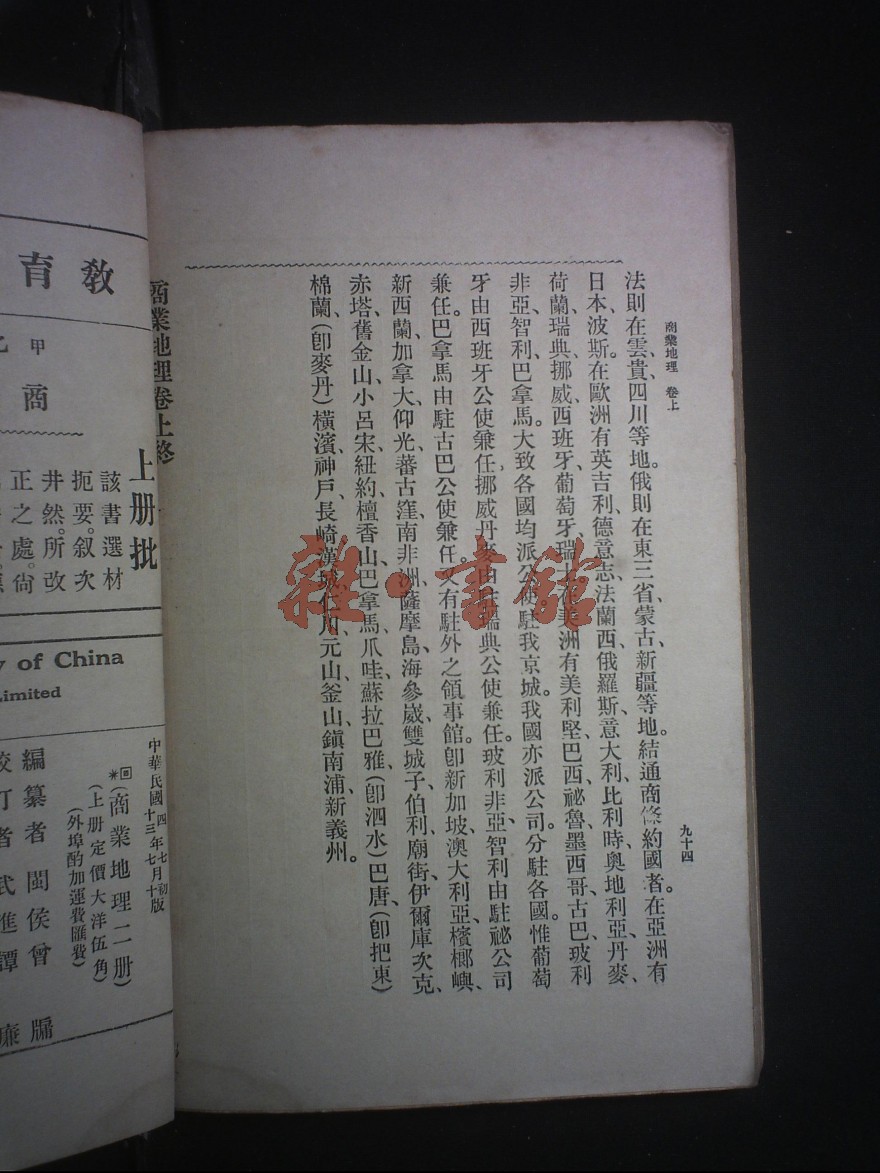 商業地理 卷上
九十四
法則在雲、貴、四川等地。俄則在東三省、蒙古、新疆等地。結通商條約國者。在亞洲有
日本、波斯。在歐洲有英吉利、德意志、法蘭西、俄羅斯、意大利、比利時、奧地利亞、丹麥、
荷蘭、瑞典、挪威、西班牙、葡萄牙、瑞士。在美洲有美利堅、巴西、祕魯、墨西哥、古巴、玻利
非亞、智利、巴拿馬。大致各國均派公使駐我京城。我國亦派公司。分駐各國。惟葡萄
牙由西班牙公使兼任。挪威、丹麥由駐瑞典公使兼任。玻利非亞、智利由駐祕公司
兼任。巴拿馬由駐古巴公使兼任。又有駐外之領事館。卽新加坡、澳大利亞、檳榔嶼、
新西蘭、加拿大、仰光、蕃古窪、南非洲、薩摩島、海參崴、雙城子、伯利、廟街、伊爾庫次克、
赤塔、舊金山、小呂宋、紐約、檀香山、巴拿馬、爪哇、蘇拉巴雅(卽泗水)巴唐(卽把東)
棉蘭(卽麥丹)橫濱、神戶、長崎、漢城、仁川、元山、釜山、鎮南浦、新義州。
商業地理卷上終
敎育
甲
商
上册批
該書選材
扼要。叙次
井然。所改
正之處。尙
y of China
Limited
中華民國
四年七月初版
十三年七月十版
(商業地理二册)
(上册定價大洋伍角)
(外埠酌加運費匯費)
編纂者 閩侯曾 牖
校訂者 武進譚 廉
雜·書館